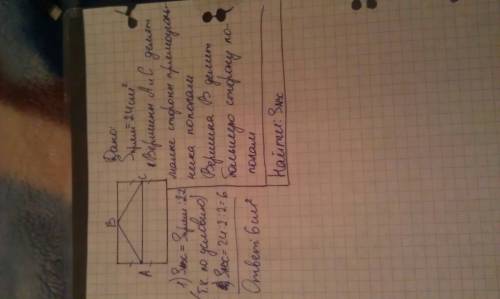 Дано:
Sпрям=24см²
Вершины A и C делят
малые стороны прямоуголь-
ника пополам
Вершина B делит
большую сторону по-
полам
Найти: SABC
B
A
C
1) SABC = Sпрям:2:2
(т.к. по условию)
2) SABC = 24:2:2=6
Ответ: 6 см²